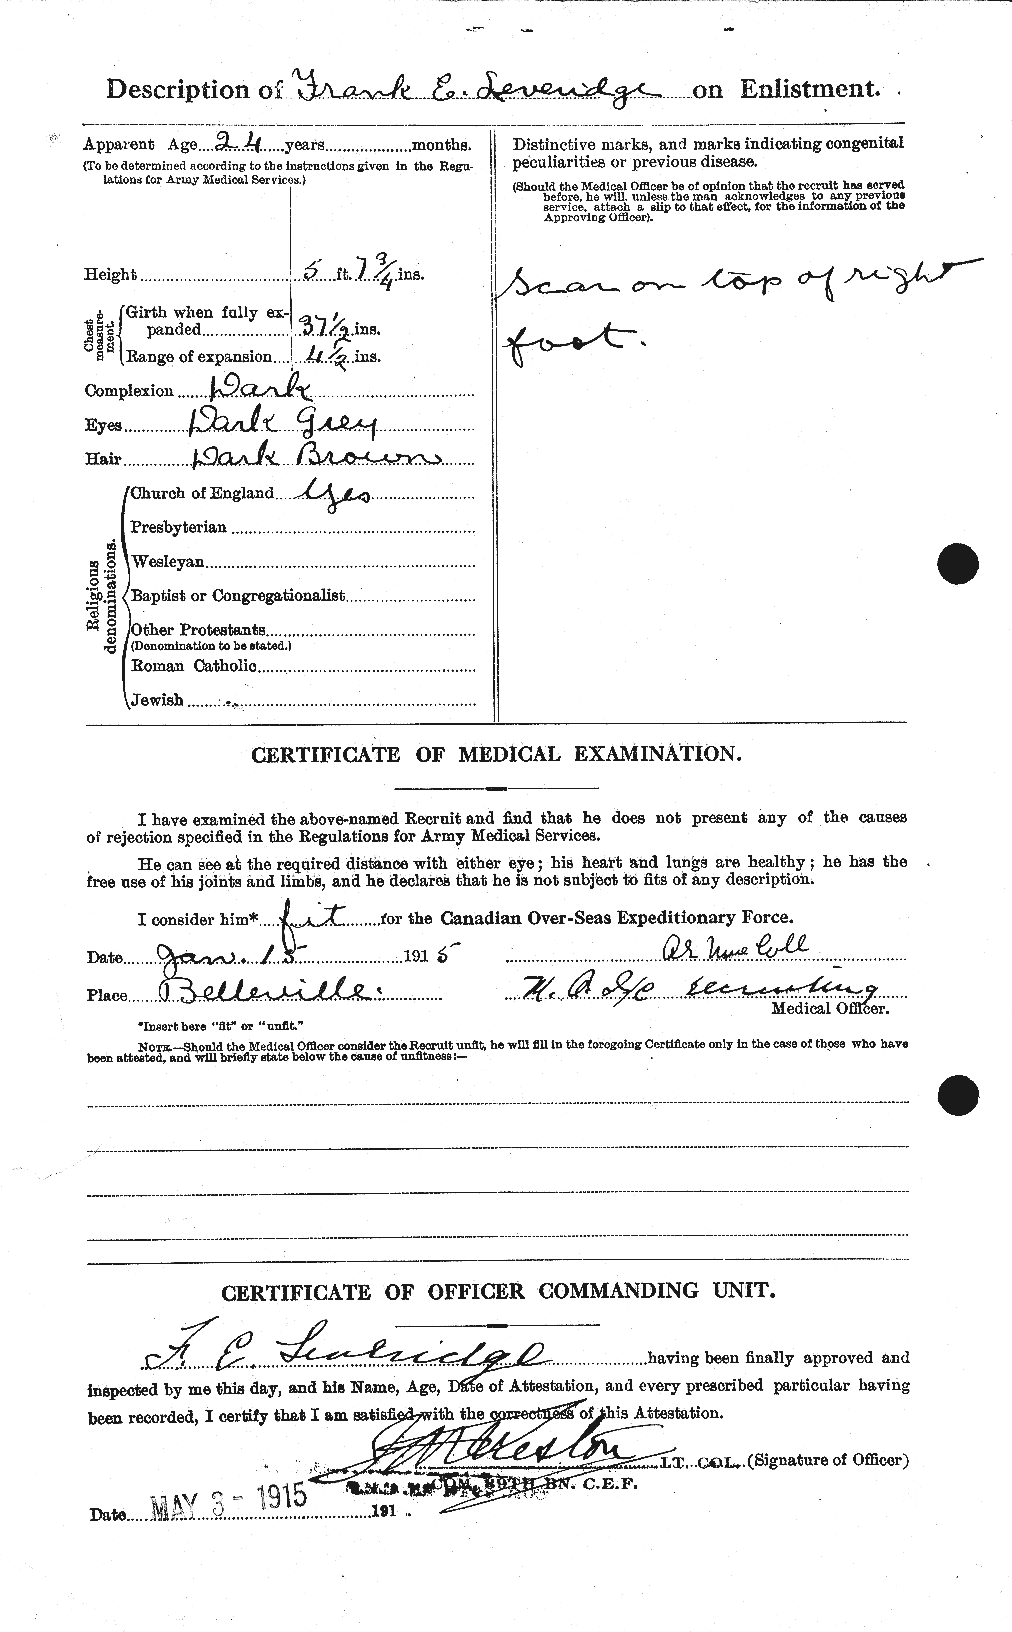 Description of Frank E. Leveridge on Enlistment.
Apparent Age 24 years months.
(To be determined according to the instructions given in the Regu-
lations for Army Medical Services.)
Height 5 ft. 7 3/4 ins.
Chest measure-
ment
Girth when fully ex-
panded 37 1/2 ins.
Range of expansion 4 1/2 ins.
Complexion Dark
Eyes Dark Grey
Hair Dark Brown
Religious denominations.
Church of England Yes
Presbyterian
Wesleyan
Baptist or Congregationalist
Other Protestants
(Denomination to be stated.)
Roman Catholic
Jewish
Distinctive marks, and marks indicating congenital
peculiarities or previous disease.
(Should the Medical Officer be of opinion that the recruit has served
before, he will, unless the man acknowledges to any previous
service, attach a slip to that effect, for the information of the
Approving Officer).
Scar on top of right
foot.
CERTIFICATE OF MEDICAL EXAMINATION.
I have examined the above-named Recruit and find that he does not present any of the causes
of rejection specified in the Regulations for Army Medical Services.
He can see at the required distance with either eye; his heart and lungs are healthy; he has the
free use of his joints and limbs, and he declares that he is not subject to fits of any description.
I consider him* fit for the Canadian Over-Seas Expeditionary Force.
Date Jan. 15 1915
Place Belleville. M. O. I/C recruiting
Medical Officer.
*Insert here "fit" or "unfit."
NOTE.—Should the Medical Officer consider the Recruit unfit, he will fill in the foregoing Certificate only in the case of those who have
been attested, and will briefly state below the cause of unfitness:—
CERTIFICATE OF OFFICER COMMANDING UNIT.
F. E. Leveridge having been finally approved and
inspected by me this day, and his Name, Age, Date of Attestation, and every prescribed particular having
been recorded, I certify that I am satisfied with the correctness of this Attestation.
Preston LT. COL. (Signature of Officer)
COM. 39TH BN. C.E.F.
Date MAY 3 - 1915 191 .